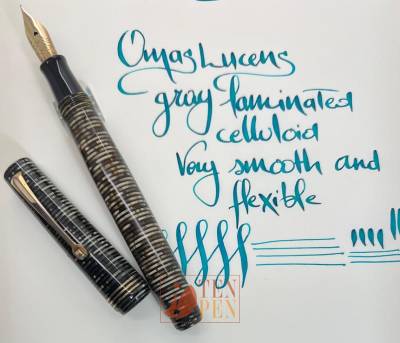 Omas Lucens
gray laminated
celluloid
Very smooth and
flexible
TEN
PEN